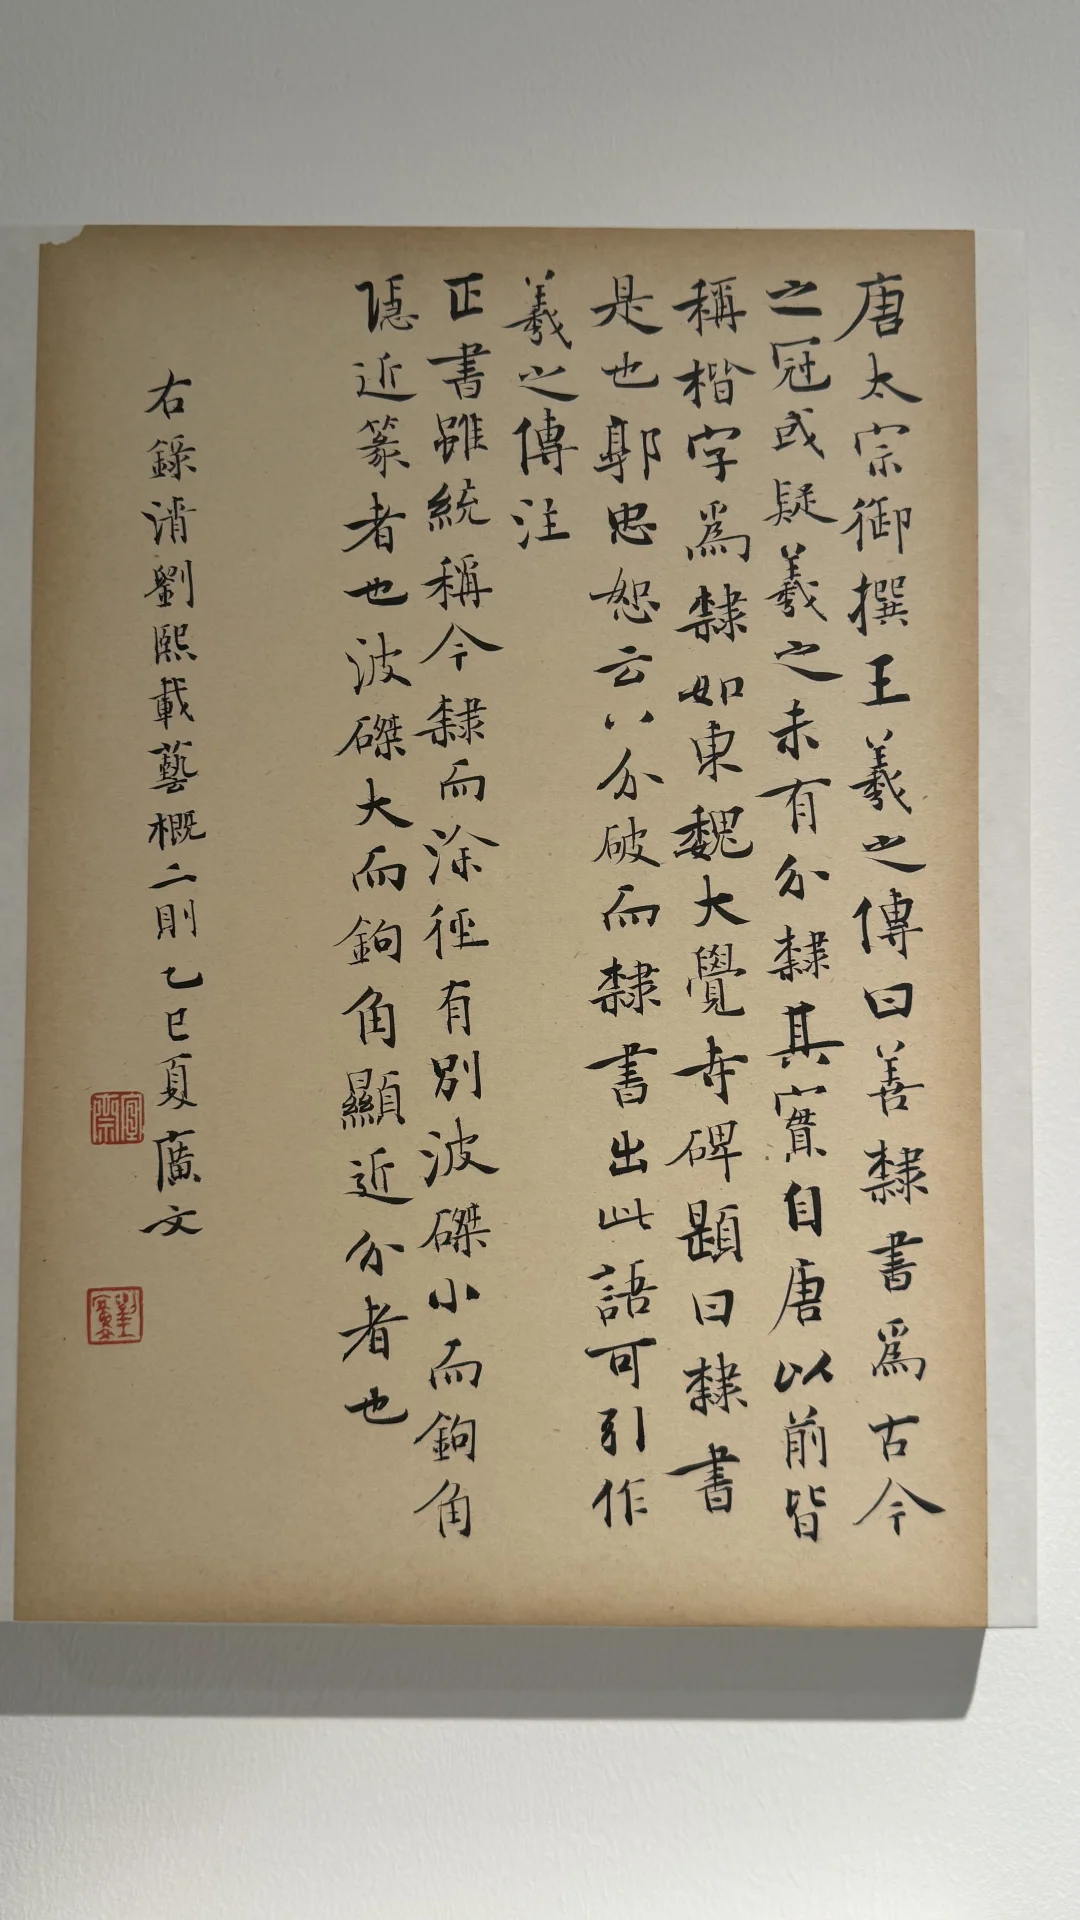 唐太宗御撰王羲之傳曰善隸書爲古今
之冠或疑羲之未有分隸其實自唐以前皆
稱楷字爲隸如東魏大覺寺碑題曰隸書
是也郭忠恕云八分破而隸書出此語可引作
羲之傳注
正書雖統稱今隸而涂徑有別波磔小而鉤角
隱近篆者也波磔大而鉤角顯近分者也
右錄清劉熙載藝概二則乙巳夏廣文